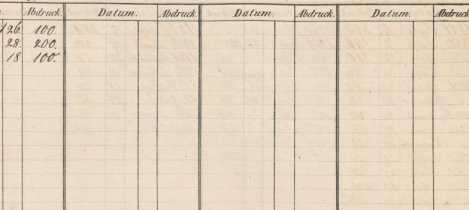 Abdruck. Datum. Abdruck. Datum. Abdruck. Datum. Abdruck
126. 100.
28. 200.
18. 100.